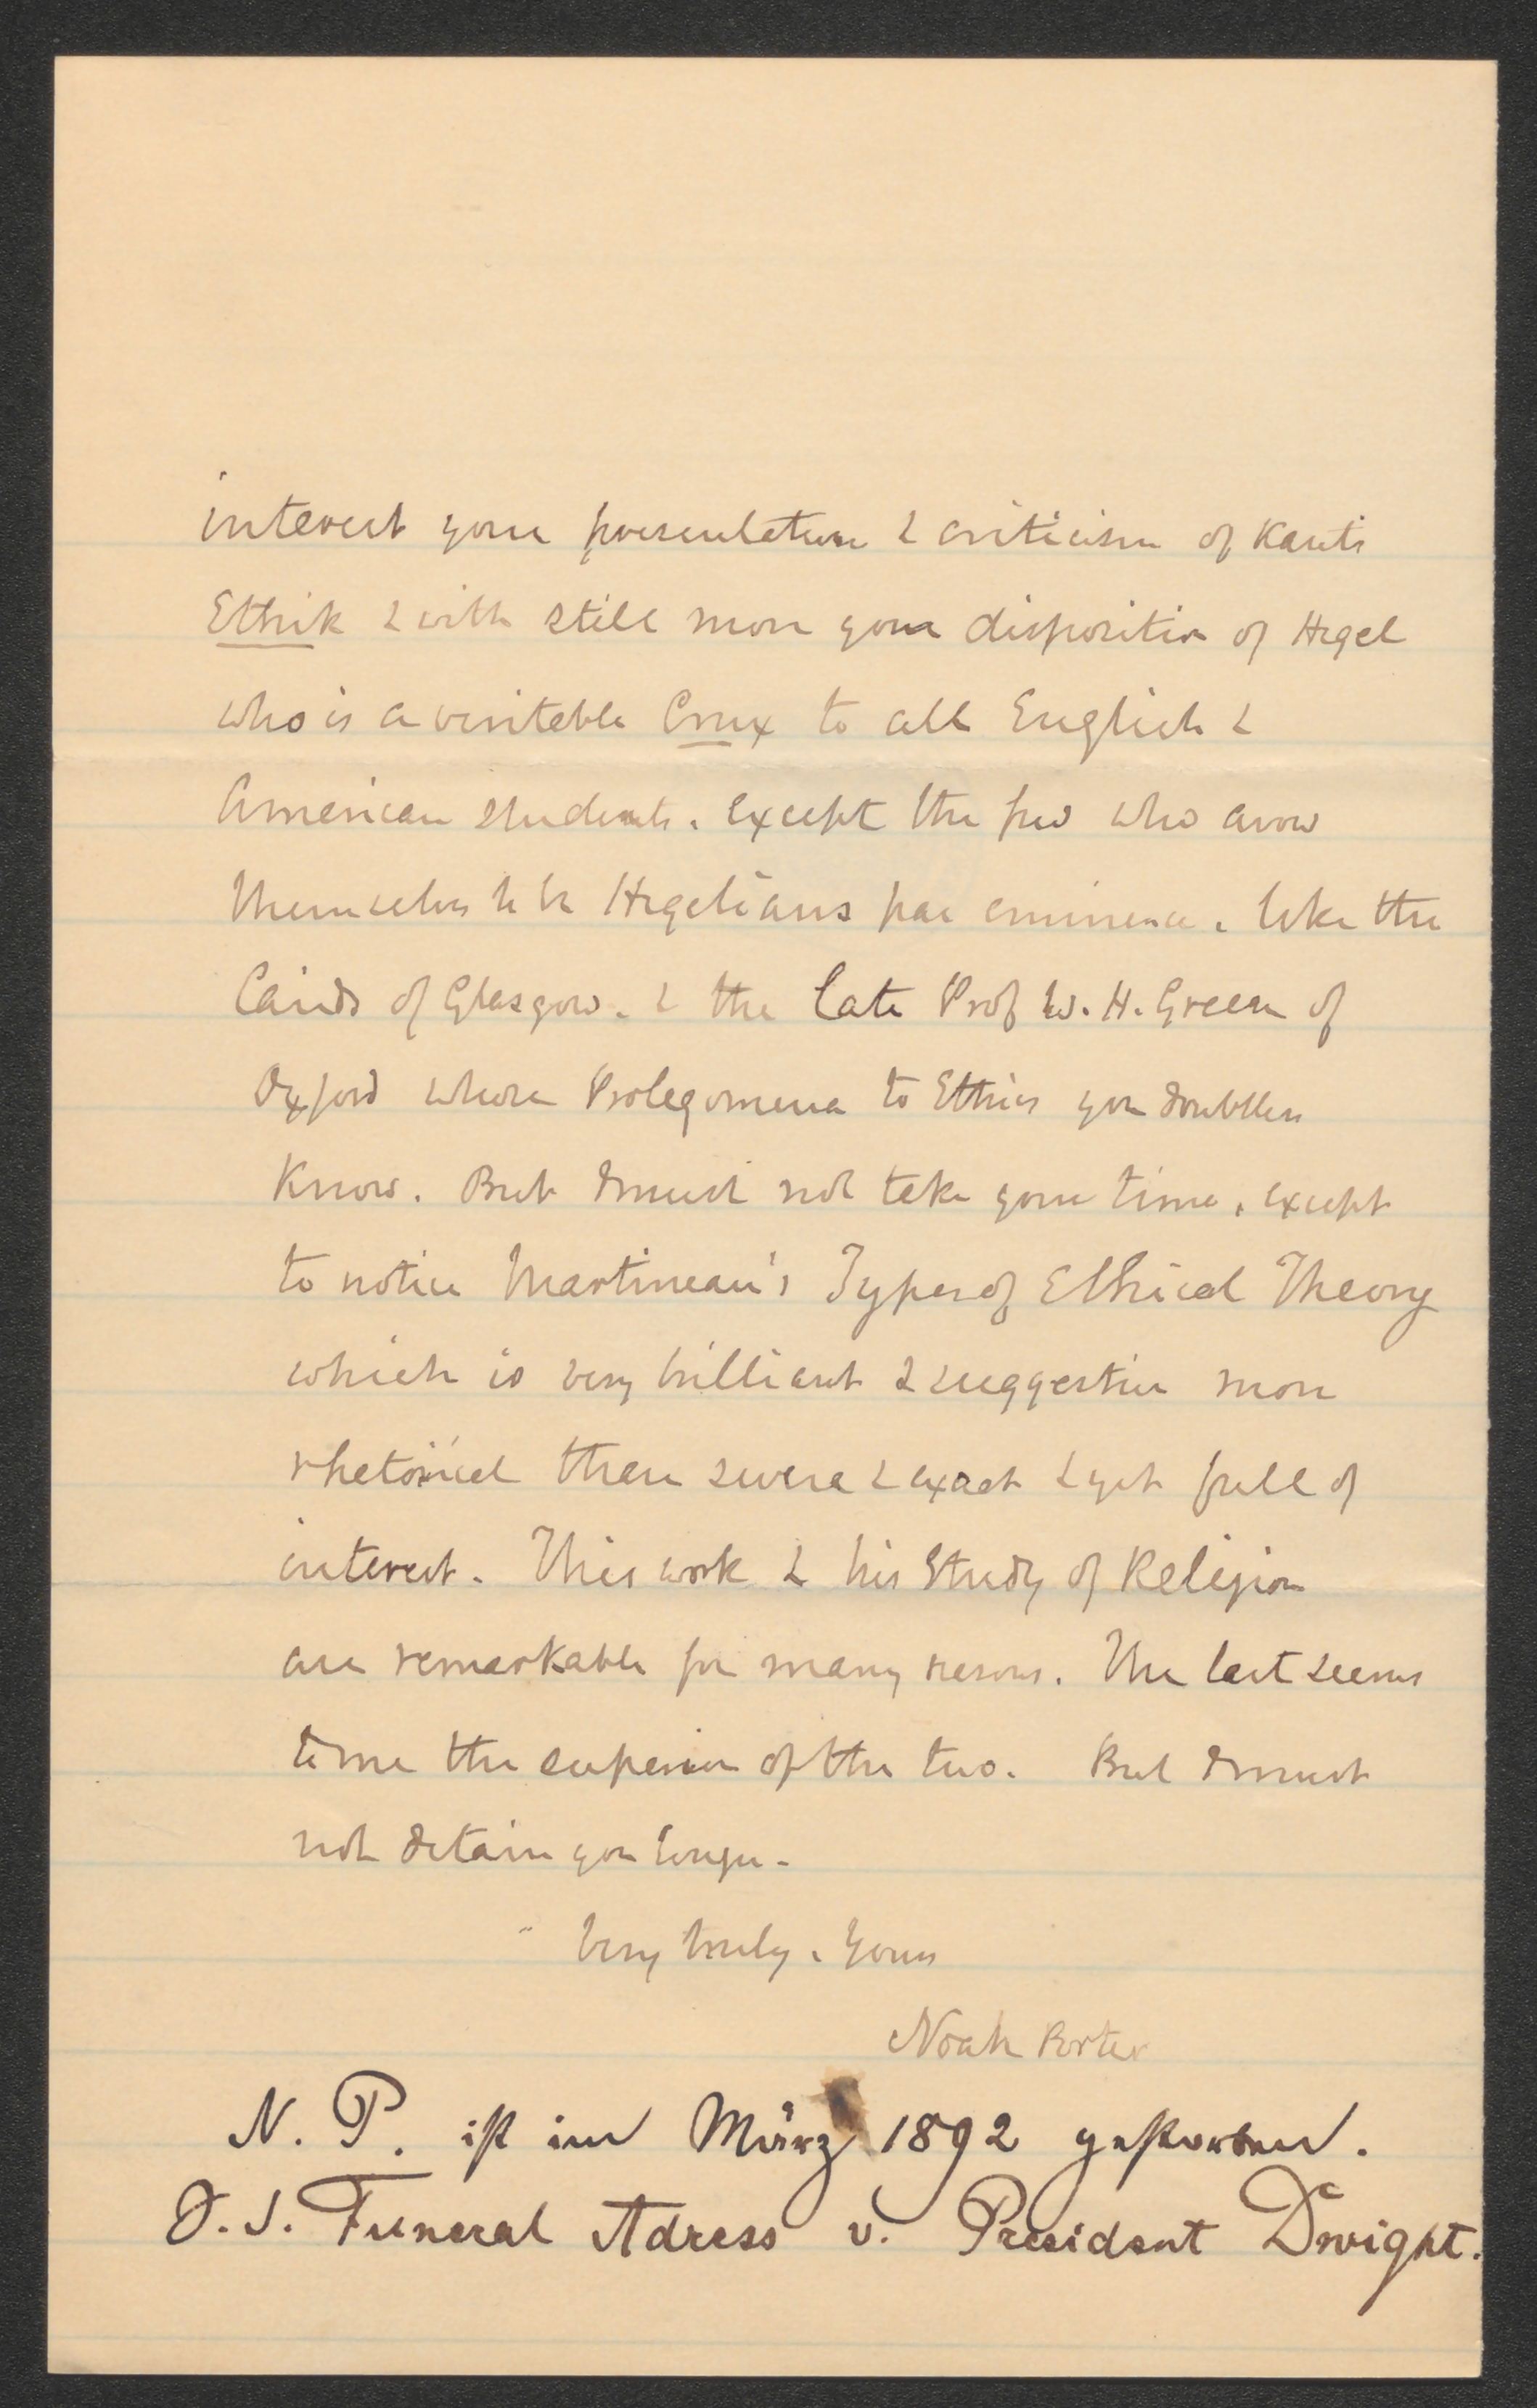 interest your presentation & criticism of Kants
Ethik & with still more your disposition of Hegel
who is a veritable Crux to all English &
American students. except the few who avow
themselves to be Hegelians par eminence. like the
Cairds of Glasgow. & the late Prof W. H. Green of
Oxford whose Prolegomena to Ethics you doubtless
know. But I must not take your time, except
to notice Martineau's Types of Ethical Theory
which is very brilliant & suggestive more
rhetorical than severe & exact & yet full of
interest. This work & his Study of Religion
are remarkable for many reasons. The last seems
to me the superior of the two. But I must
not detain you longer.
Very truly. Yours
Noah Porter
N. P. ist im März 1892 gestorben.
Funeral Adress v. President Dwight.